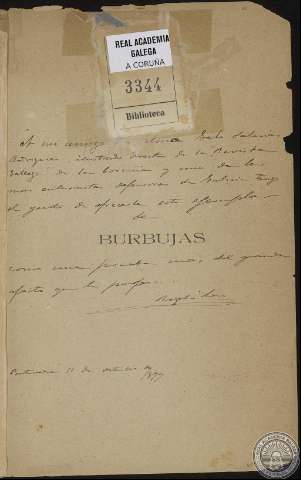 REAL ACADEMIA
GALEGA
A CORUÑA
3344
Biblioteca
A mi amigo Galo Salinas
Rodríguez, ilustrado director de la Revista
Gallega de la Coruña y uno de los
mas entusiastas defensores de Galicia tengo
el gusto de ofrecerle este ejemplar
de
BURBUJAS
como una prueba mas del grande
afecto que le profesa
Pontevedra 11 de octubre de
1897